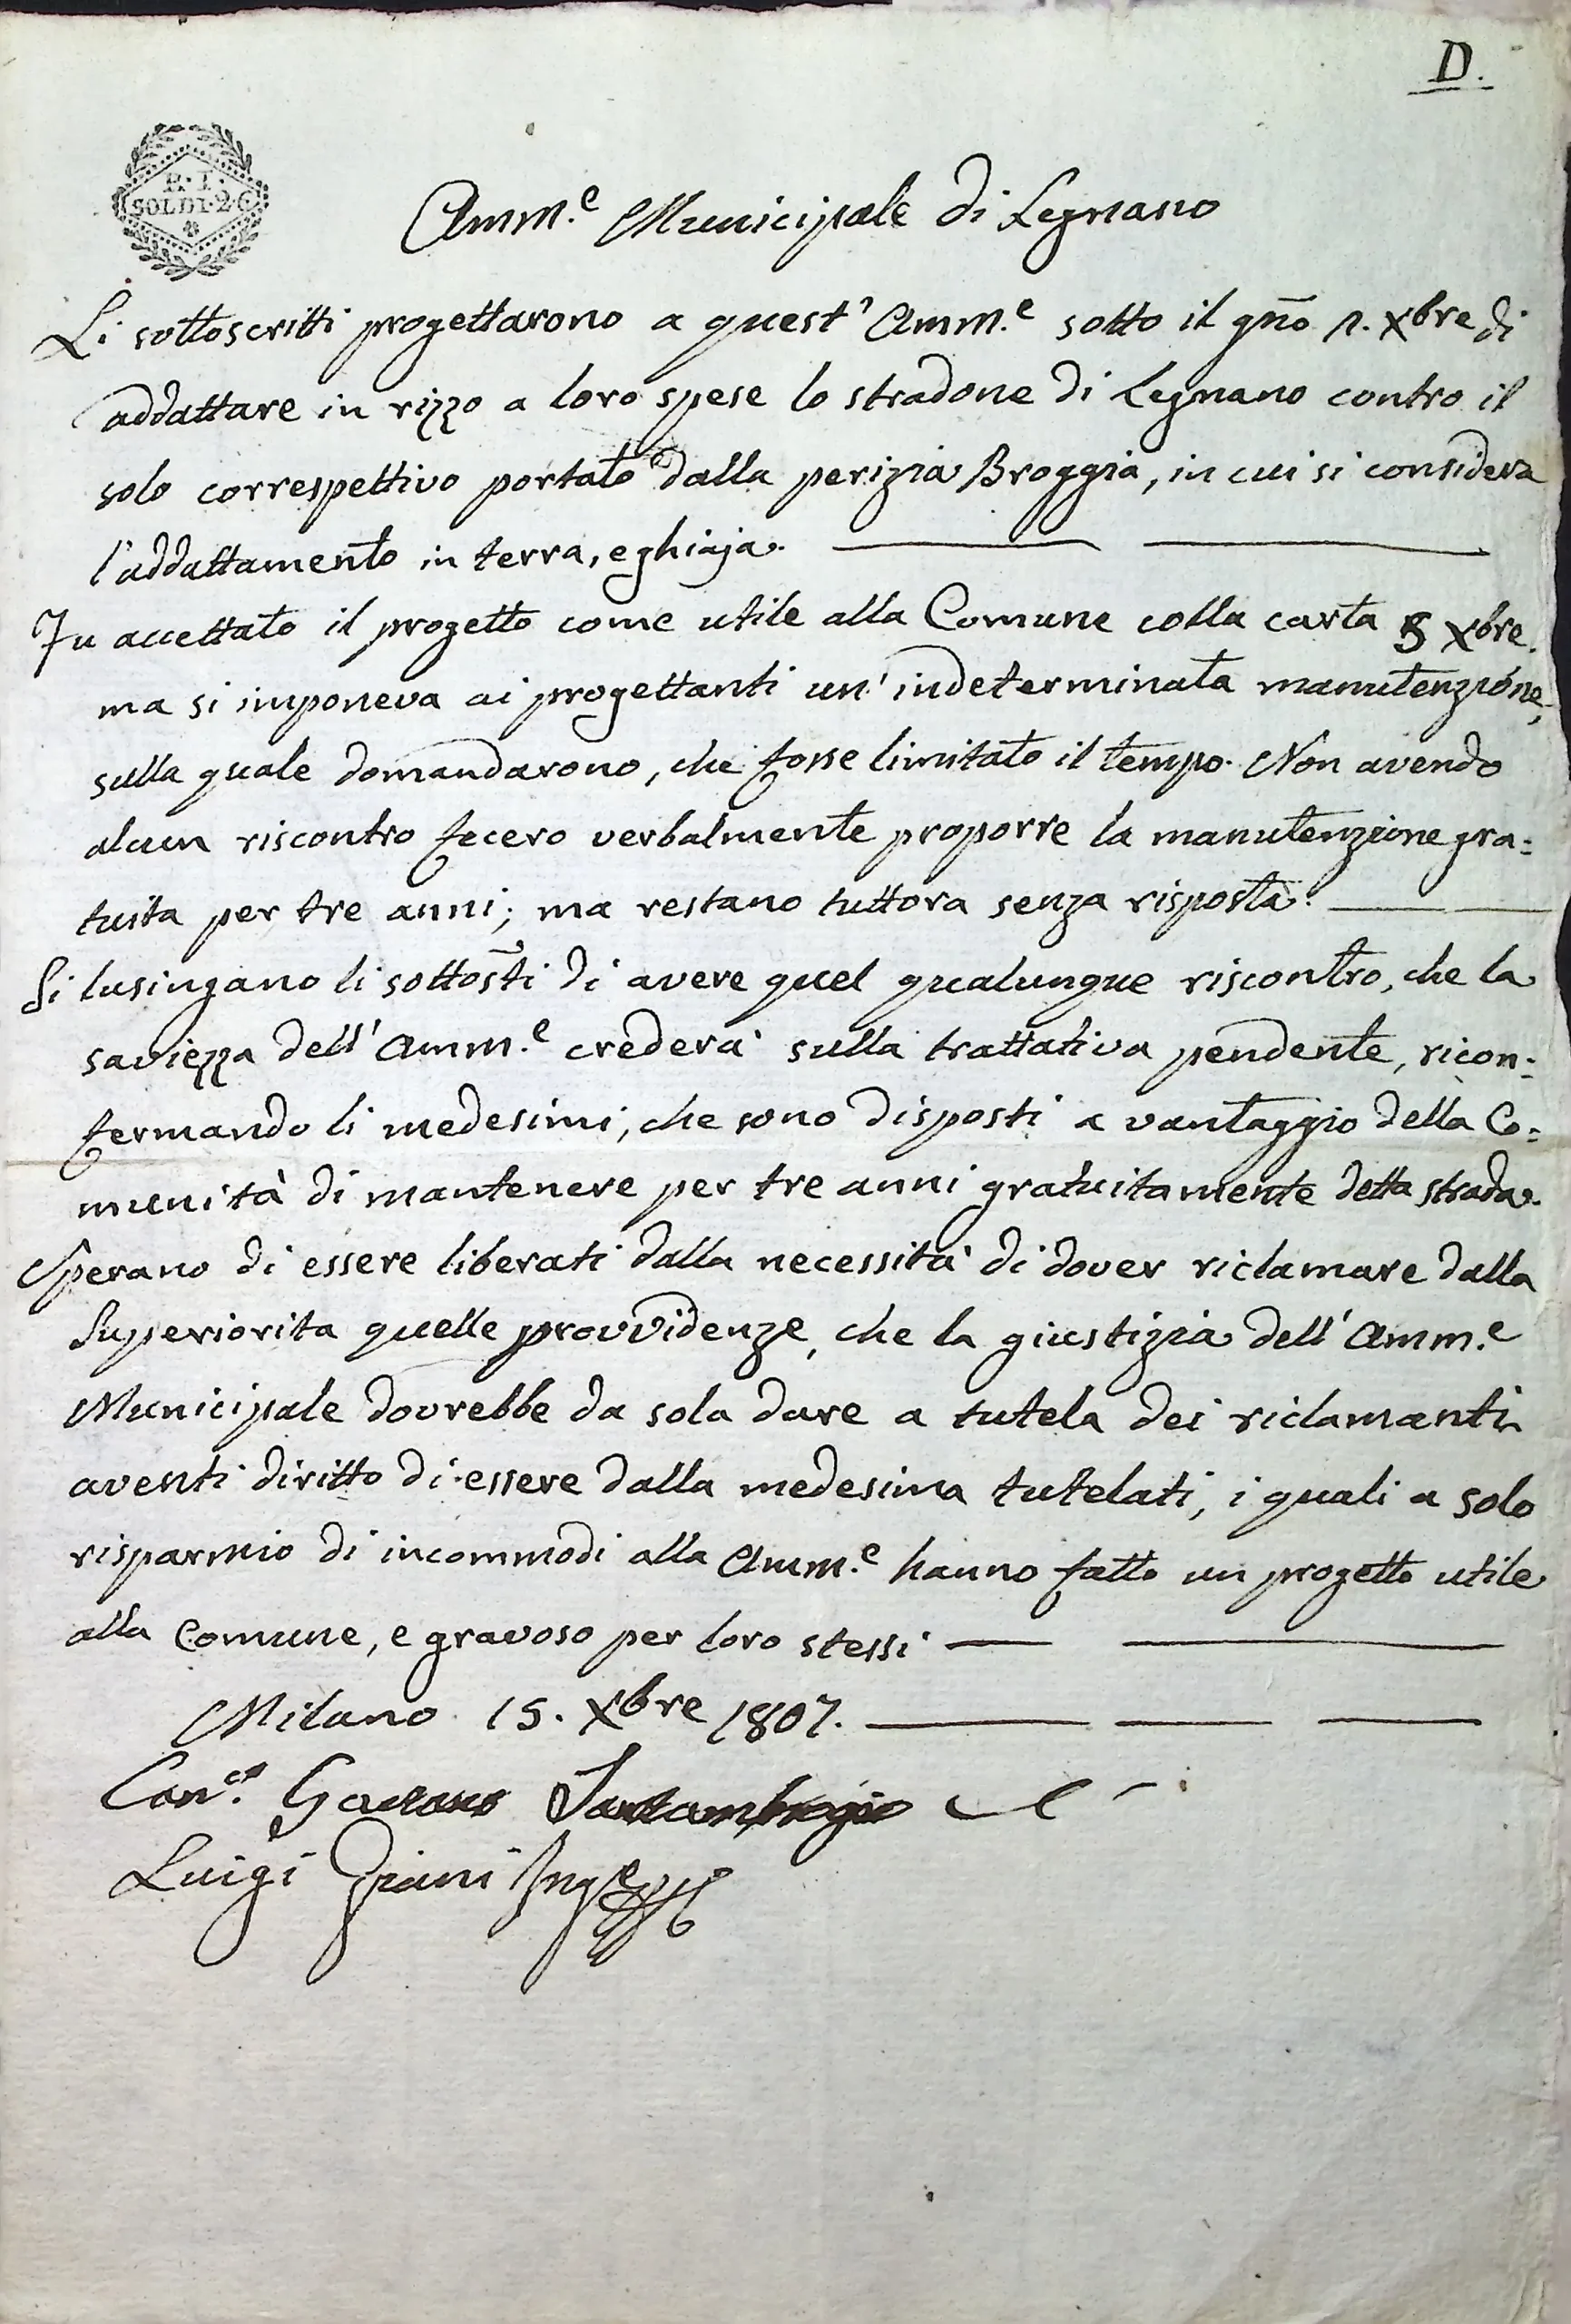 D.
R. I.
SOLDI. 2. C
Amm.e Municipale di Legnano
Li sottoscritti progettarono a quest' Amm.e sotto il gñо 1. Xbre di
addattare in rizzo a loro spese lo stradone di Legnano contro il
solo correspettivo portato dalla perizia Broggia, in cui si considera
l'addattamento in terra, e ghiaja.
Fu accettato il progetto come utile alla Comune colla carta 5 Xbre.
ma si imponeva ai progettanti un' indeterminata manutenzione,
sulla quale domandarono, che fosse limitato il tempo. Non avendo
alcun riscontro fecero verbalmente proporre la manutenzione gra:
tuita per tre anni; ma restano tuttora senza risposta.
Si lusingano li sottosti di avere quel qualunque riscontro, che la
saviezza dell' Amm.e crederà sulla trattativa pendente, ricon:
fermando li medesimi, che sono disposti a vantaggio della Co:
munità di mantenere per tre anni gratuitamente detta strada.
Sperano di essere liberati dalla necessità di dover riclamare dalla
Superiorita quelle provvidenze, che la giustizia dell' Amm.e
Municipale dovrebbe da sola dare a tutela dei riclamanti
aventi diritto di essere dalla medesima tutelati, i quali a solo
risparmio di incommodi alla Amm.e hanno fatto un progetto utile
alla Comune, e gravoso per loro stessi
Milano 15. Xbre 1807.
Gaetano Santambrogio
Luigi Giani Inge